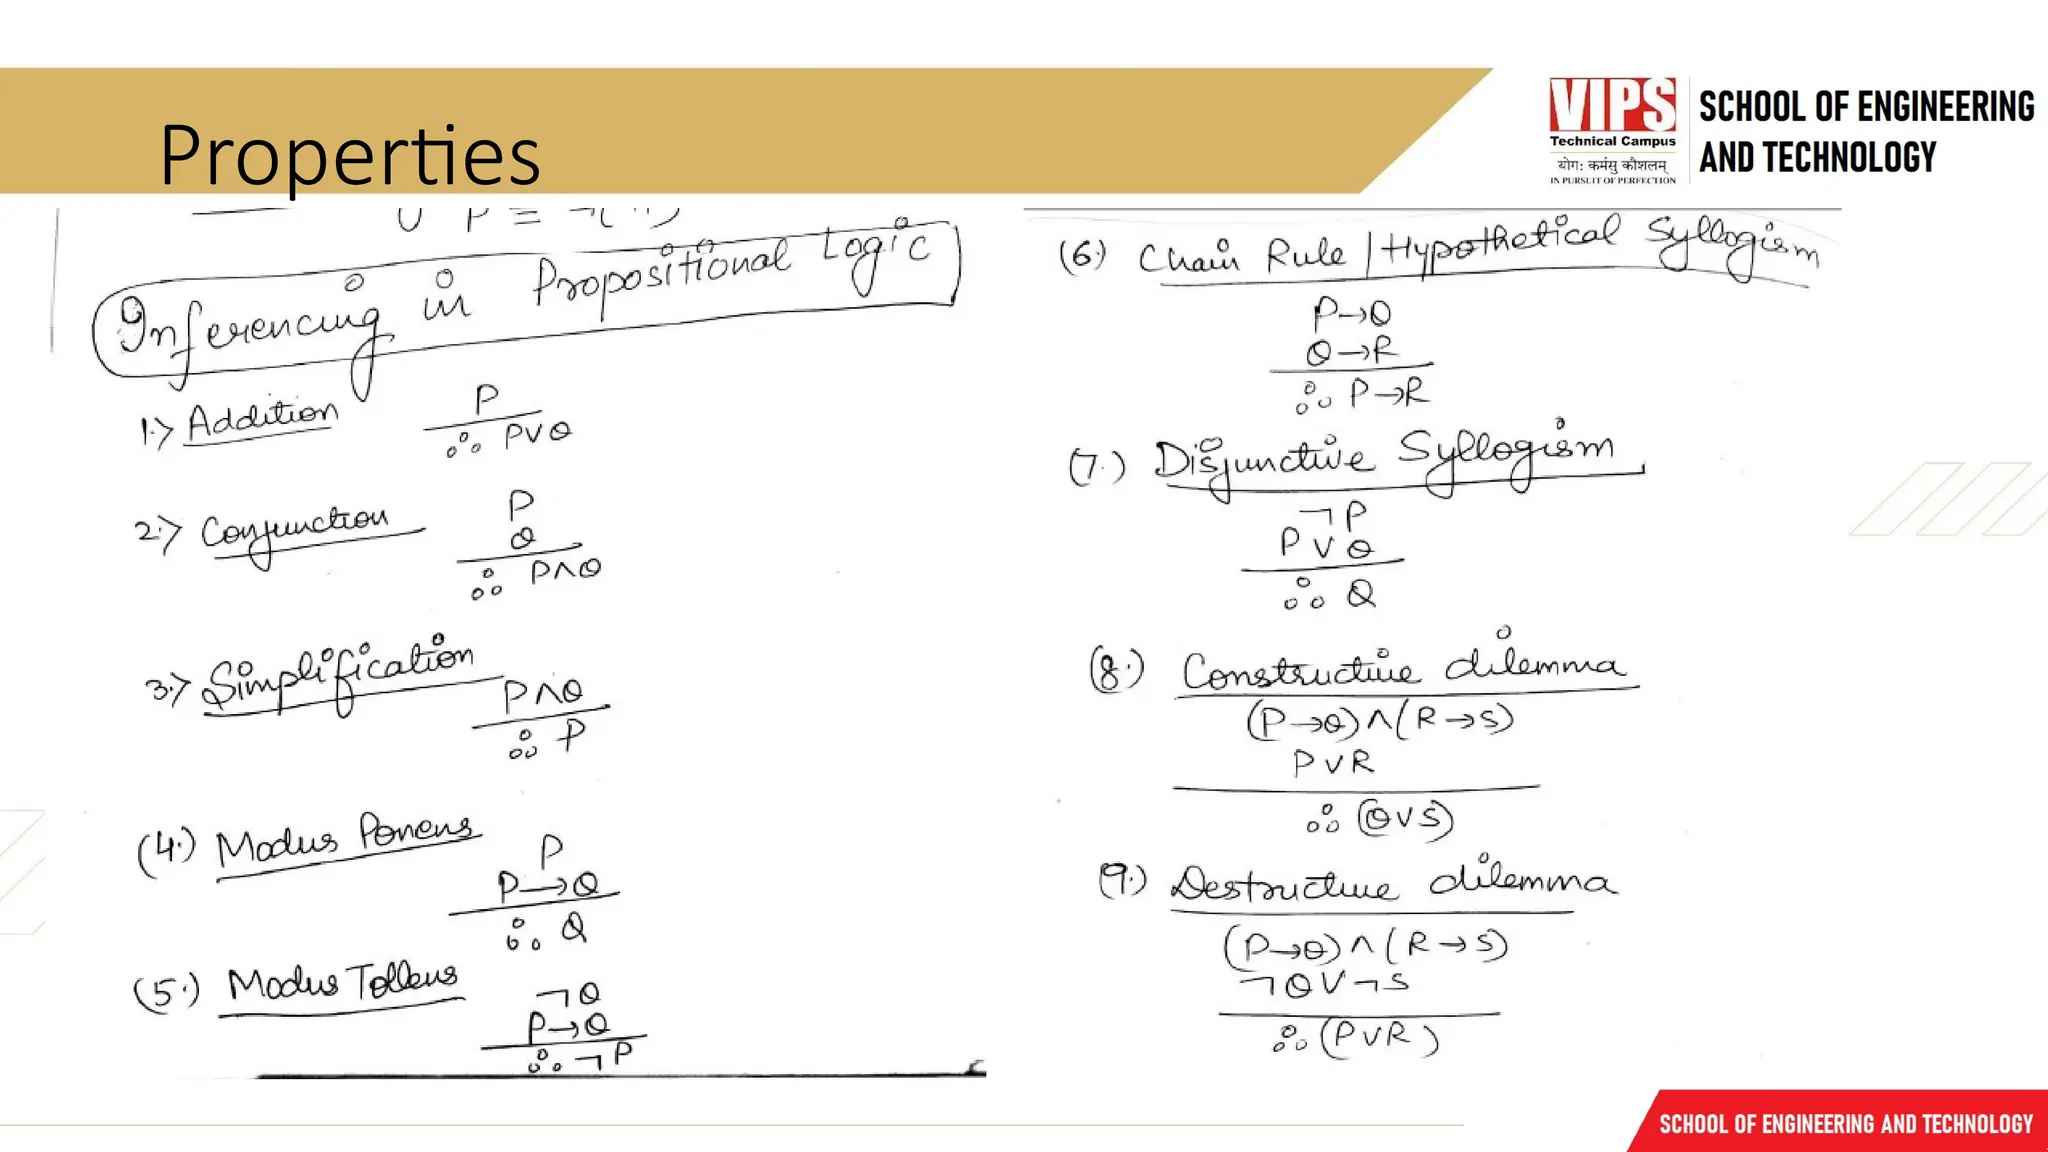 Properties
VIPS
Technical Campus
योगः कर्मसु कौशलम्
IN PURSUIT OF PERFECTION
SCHOOL OF ENGINEERING
AND TECHNOLOGY
Inferencing in Propositional Logic
1.> Addition
P
∴ P∨Q
2.> Conjunction
P
Q
∴ P∧Q
3.> Simplification
P∧Q
∴ P
(4.) Modus Ponens
P
P→Q
∴ Q
(5.) Modus Tollens
¬Q
P→Q
∴ ¬P
(6.) Chain Rule / Hypothetical Syllogism
P→Q
Q→R
∴ P→R
(7.) Disjunctive Syllogism
¬P
P∨Q
∴ Q
(8.) Constructive dilemma
(P→Q)∧(R→S)
P∨R
∴ (Q∨S)
(9.) Destructive dilemma
(P→Q)∧(R→S)
¬Q∨¬S
∴ (P∨R)
SCHOOL OF ENGINEERING AND TECHNOLOGY